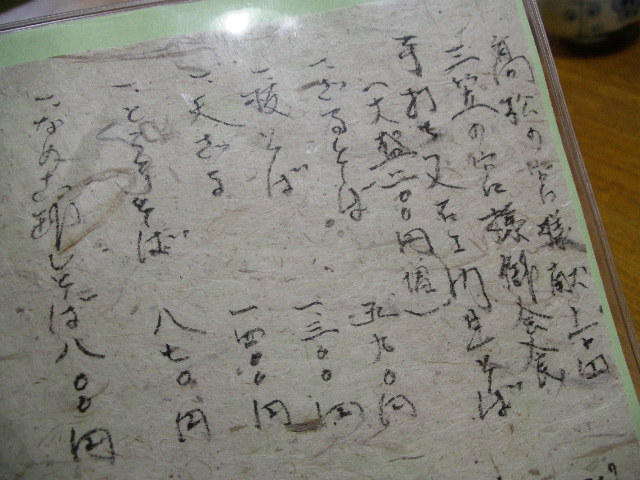 高松の宮様献上の品
三笠の宮様御会食
手打ち又右エ門見そば
(大盛二〇〇円増)
一、ざるそば 五九〇円
一、板そば 一三〇〇円
一、天ざる 一四〇〇円
一、とろろそば 八七〇円
一、なめこ卸しそば 八〇〇円